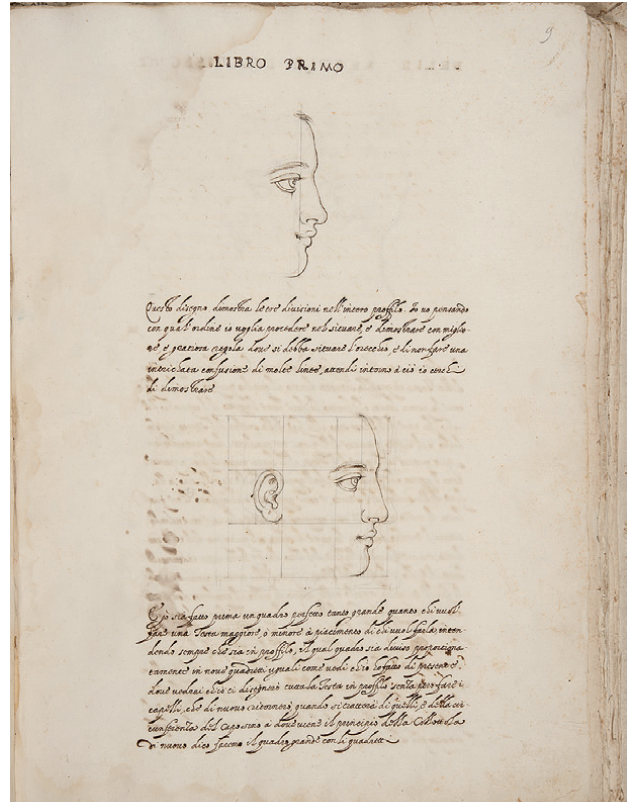 9
LIBRO PRIMO
Questo disegno demostra le tre divisioni nell'intero proffilo. Io vo pensando
con qual'ordine io voglia procedere nel situare, e demostrare con miglio-
re e gratiosa regola dove si debba situare l'orecchio, e di non fare una
intrichata confusione di molte linee, attendi intorno à ciò io cerchi
di demostrare
sia fatto prima un quadro perfetto tanto grande quanto chi vuol
fare una Testa maggiore, o minore à piacimento di chi vuol farla, inten-
dendo sempre che sia in proffilo, il qual quadro sia diviso proportiona-
tamente in nove quadretti uguali come vedi ch'io ho fatto di presente,
dove vedrai ch'io ci disegnerò tutta la Testa in proffilo senza però fare i
capelli, che di nuovo ritornerò quando si trattarà di quelli, e della cir-
cunferenza del Capo sino à dove viene il principio della Collottola
di nuovo dico facemo il quadro grande con li quadretti